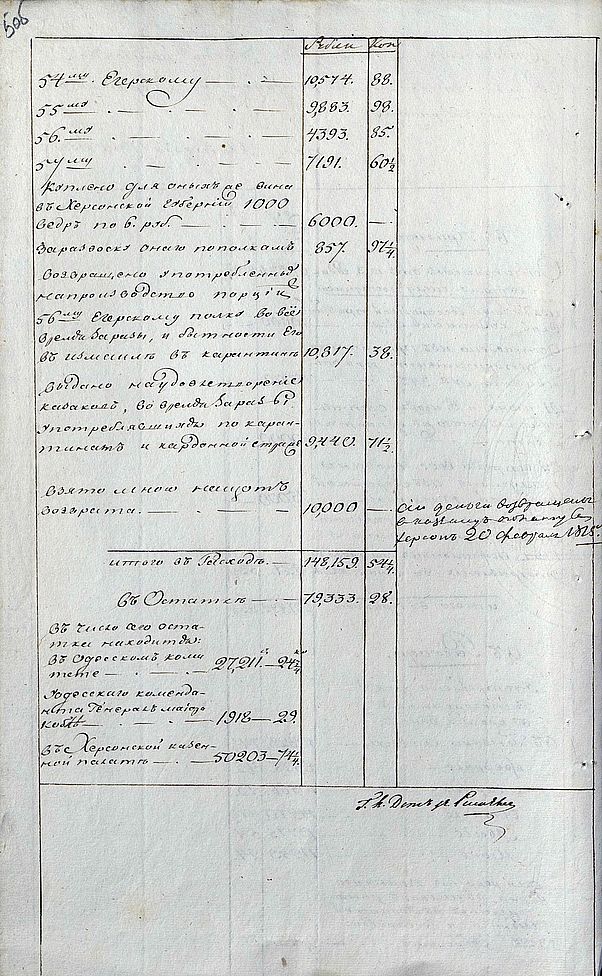 506
Рубли Коп
54му Егерскому — . — 10,574. 88.
55му — . — . — . — 9,883. 98.
56.му — . — . — 4393. 85.
57му — . — . — 7191. 60½
Куплено для оныхъ же вина
въ Херсонской Губерніи, 1000
ведръ по 6. руб. — . — 6000. —
За развоску онаго по полкамъ 857. 97¼.
Возвращено употребленныя
на производство порціи
56му Егерскому полку во всё
время заразы, и бытности Его
въ Измаилѣ въ карантинѣ 10,817. 38.
Выдано на удовлетвореніе
казаковъ, во время заразы
употреблявшихся по каран-
тинамъ и карданной стражѣ 9,440. 71½.
Взято мною на щотъ
возврата. — . — . — 10,000 —
сіи деньги возвращены
Херсонъ 20 февраля 1815.
итого въ Расходѣ. — 148,159. 54¼.
Въ Остаткѣ — . — 79,333. 28.
Въ число сего оста-
тка находится:
Въ Одесскомъ коми
тете — . — . — 27,211. — 24¾
У Одесскаго коменда-
нта Генералъ маіора
— . — . — 1918 — 29.
въ Херсонской казен-
ной палатѣ — . — 50203 — 74¼.